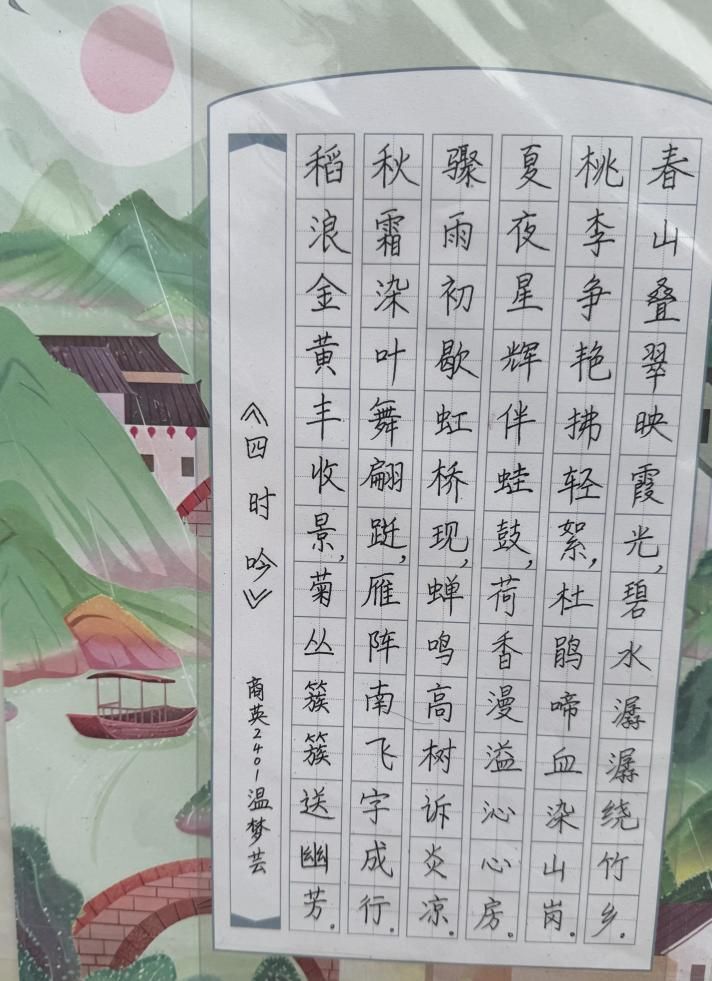 春山叠翠映霞光，碧水潺潺绕竹乡。
桃李争艳拂轻絮，杜鹃啼血染山岗。
夏夜星辉伴蛙鼓，荷香漫溢沁心房。
骤雨初歇虹桥现，蝉鸣高树诉炎凉。
秋霜染叶舞翩跹，雁阵南飞字成行。
稻浪金黄丰收景，菊丛簇簇送幽芳。
《四时吟》 商英2401温梦芸